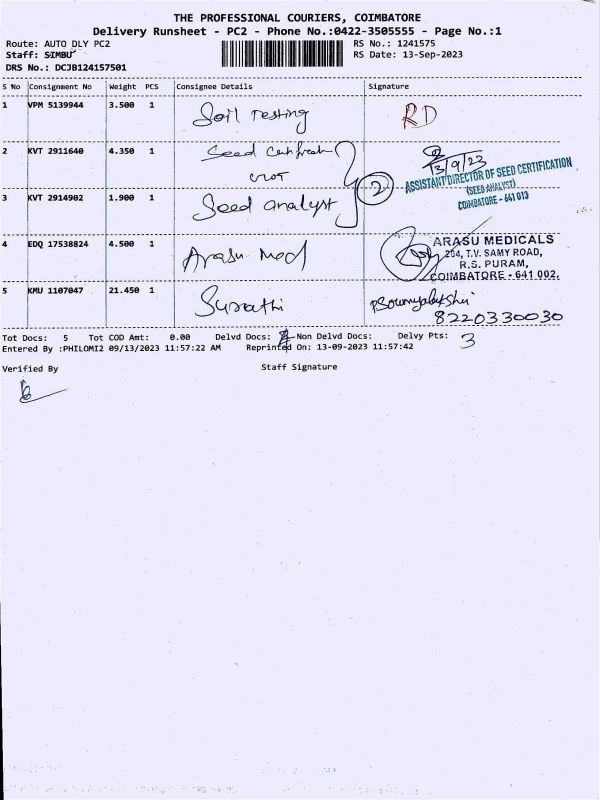 THE PROFESSIONAL COURIERS, COIMBATORE
Delivery Runsheet - PC2 - Phone No.:0422-3505555 - Page No.:1
Route: AUTO DLY PC2 RS No.: 1241575
Staff: SIMBU RS Date: 13-Sep-2023
DRS No.: DCJB124157501
S No Consignment No Weight PCS Consignee Details Signature
1 VPM 5139944 3.500 1 Soil Testing RD
2 KVT 2911640 4.350 1 Seed 13/9/23
ASSISTANT DIRECTOR OF SEED CERTIFICATION
(SEED ANALYST)
COIMBATORE - 641 013
2
3 KVT 2914902 1.900 1 Seed analyst
4 EDQ 17538824 4.500 1 Arasu Med
ARASU MEDICALS
204, T.V. SAMY ROAD,
R.S. PURAM,
COIMBATORE - 641 002.
5 KMU 1107047 21.450 1
8220330030
Tot Docs: 5 Tot COD Amt: 0.00 Delvd Docs: Non Delvd Docs: Delvy Pts: 3
Entered By :PHILOMI2 09/13/2023 11:57:22 AM Reprinted On: 13-09-2023 11:57:42
Verified By Staff Signature